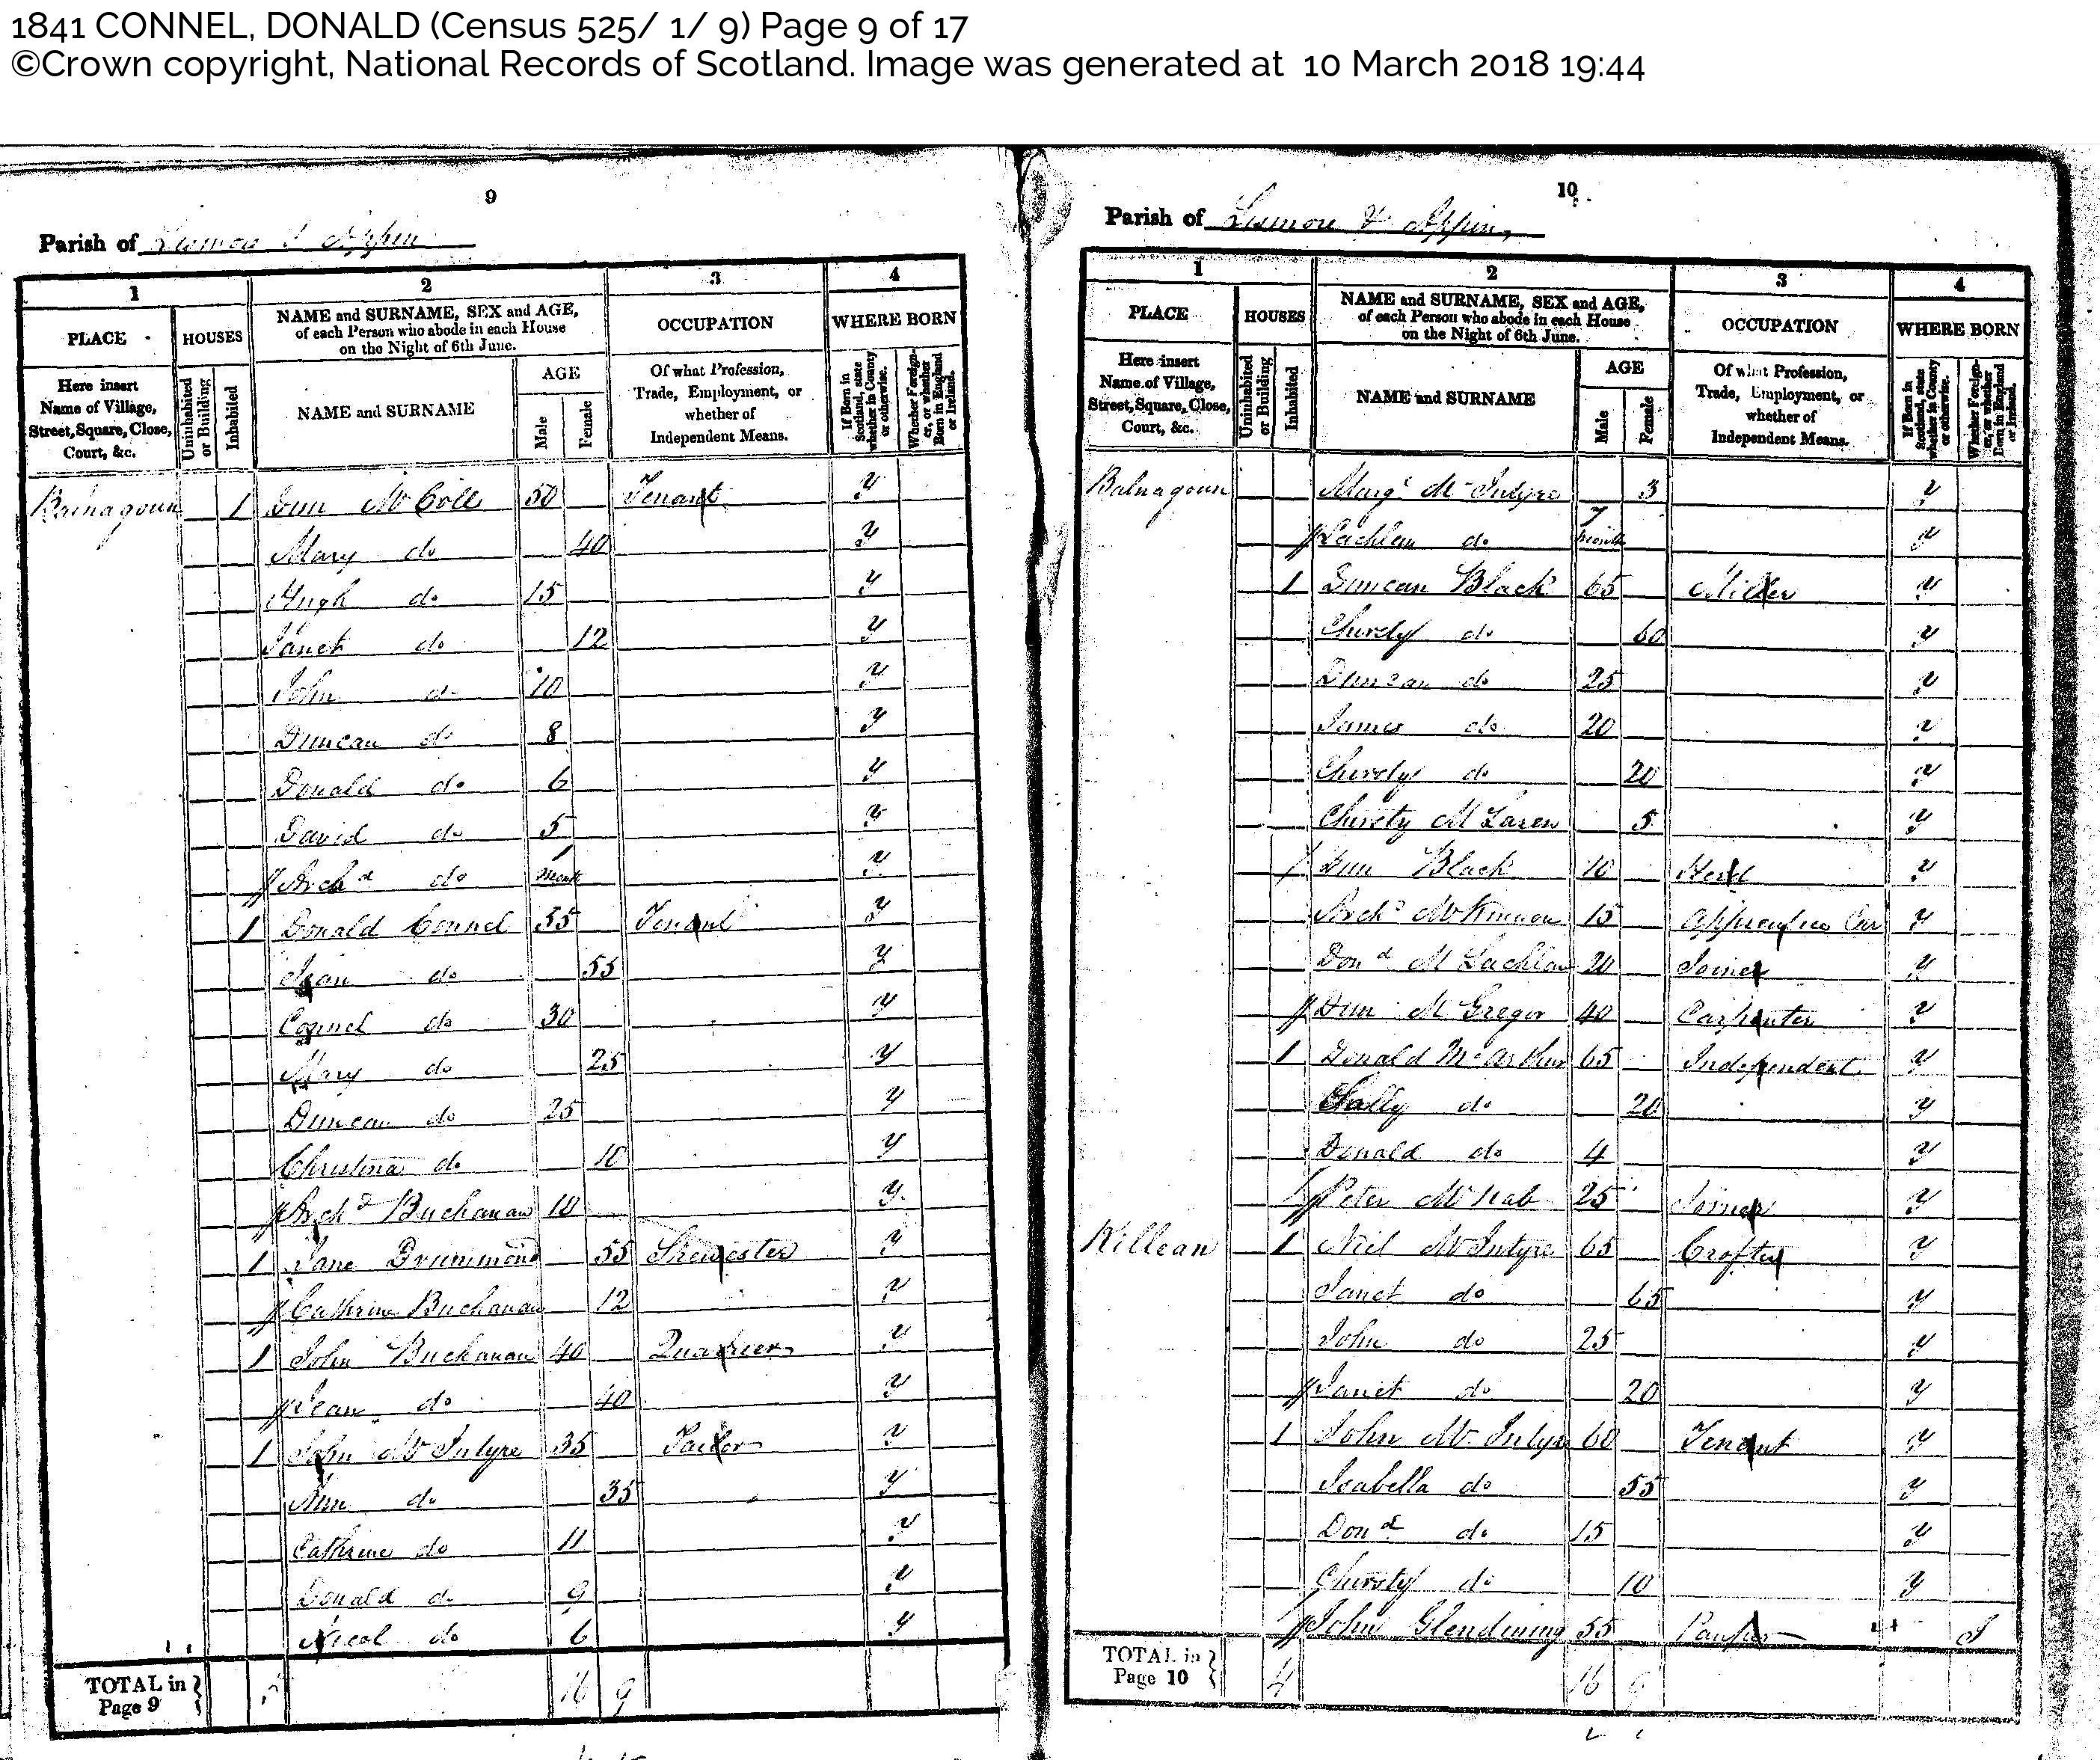 1841 CONNEL, DONALD (Census 525/ 1/ 9) Page 9 of 17
©Crown copyright, National Records of Scotland. Image was generated at 10 March 2018 19:44
9
Parish of Lismore & Appin
1 2 3 4
PLACE HOUSES NAME and SURNAME, SEX and AGE, of each Person who abode in each House on the Night of 6th June. OCCUPATION WHERE BORN
Here insert Name of Village, Street, Square, Close, Court, &c. Uninhabited or Building Inhabited NAME and SURNAME AGE Male Female Of what Profession, Trade, Employment, or whether of Independent Means. If Born in Scotland, state whether in County or otherwise. Whether Foreigner, or whether Born in England or Ireland.
Balnagoun 1 Dun McColl 50 Tenant y
Mary do 40 y
Hugh do 15 y
Janet do 12 y
John do 10 y
Duncan do 8 y
Donald do 6 y
David do 5 y
Archd do 1 month y
1 Donald Connel 35 Tenant y
Jean do 55 y
Connel do 30 y
Mary do 25 y
Duncan do 25 y
Christina do 10 y
Archd Buchanan 10 y
1 Jane Drummond 55 y
Cathrine Buchanan 12 y
1 John Buchanan 40 Quarrier y
Jean do 40 y
1 John McIntyre 35 Tailor y
Ann do 35 y
Cathrine do 11 y
Donald do 9 y
Nicol do 6 y
TOTAL in Page 9 16 9
10
Parish of Lismore & Appin,
1 2 3 4
PLACE HOUSES NAME and SURNAME, SEX and AGE, of each Person who abode in each House on the Night of 6th June. OCCUPATION WHERE BORN
Here insert Name of Village, Street, Square, Close, Court, &c. Uninhabited or Building Inhabited NAME and SURNAME AGE Male Female Of what Profession, Trade, Employment, or whether of Independent Means. If Born in Scotland, state whether in County or otherwise. Whether Foreigner, or whether Born in England or Ireland.
Balnagoun Margt McIntyre 3 y
Lachlan do 7 months y
1 Duncan Black 65 Miller y
Chirsty do 60 y
Duncan do 25 y
James do 20 y
Chirsty do 20 y
Chirsty McLaren 5 y
Dun Black 10 Herd y
Archd McKinnon 15 Apprentice Car y
Dond McLachlan 20 Joiner y
Dun McGregor 40 Carpenter y
1 Donald McArthur 65 Independent y
Sally do 20 y
Donald do 4 y
Peter McNab 25 Joiner y
Killean 1 Niel McIntyre 65 Crofter y
Janet do 65 y
John do 25 y
Janet do 20 y
1 John McIntyre 60 Tenant y
Isabella do 55 y
Dond do 15 y
Chirsty do 10 y
John Glendining 55 Pauper I
TOTAL in Page 10 4 16 9